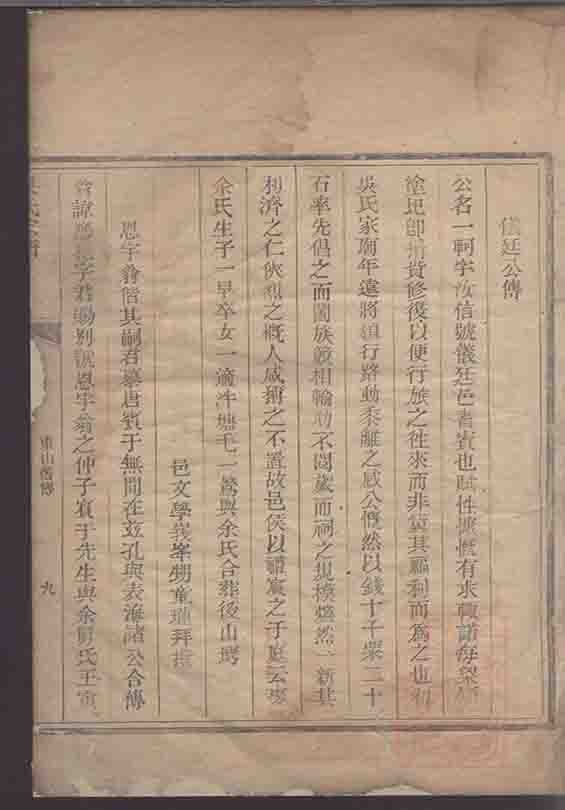 儀廷公傳
公名一軻字汝信號儀廷邑耆賓也賦性慷慨有求輒諾每梁
塗圯卽捐貲修復以便行旅之徃來而非冀其福利而爲之也
吳氏家廟年遠將頹行路動黍離之感公慨然以錢十千粟二十
石率先倡之而闔族義相輸助不閱歲而祠之規模燦然一新其
利濟之仁俠烈之槪人咸嘖之不置故邑侯以禮賓之于庭云娶
余氏生子一早卒女一適冲塘毛一鷟與余氏合葬後山塝
邑文學峩峯甥童瓘拜
恩宇翁偕其嗣君慕唐賓于無間在玆孔與表海諸公合傳
翁諱 字君 別號恩宇翁之仲子賓于先生與余舅氏王賓
重山舊傳
九